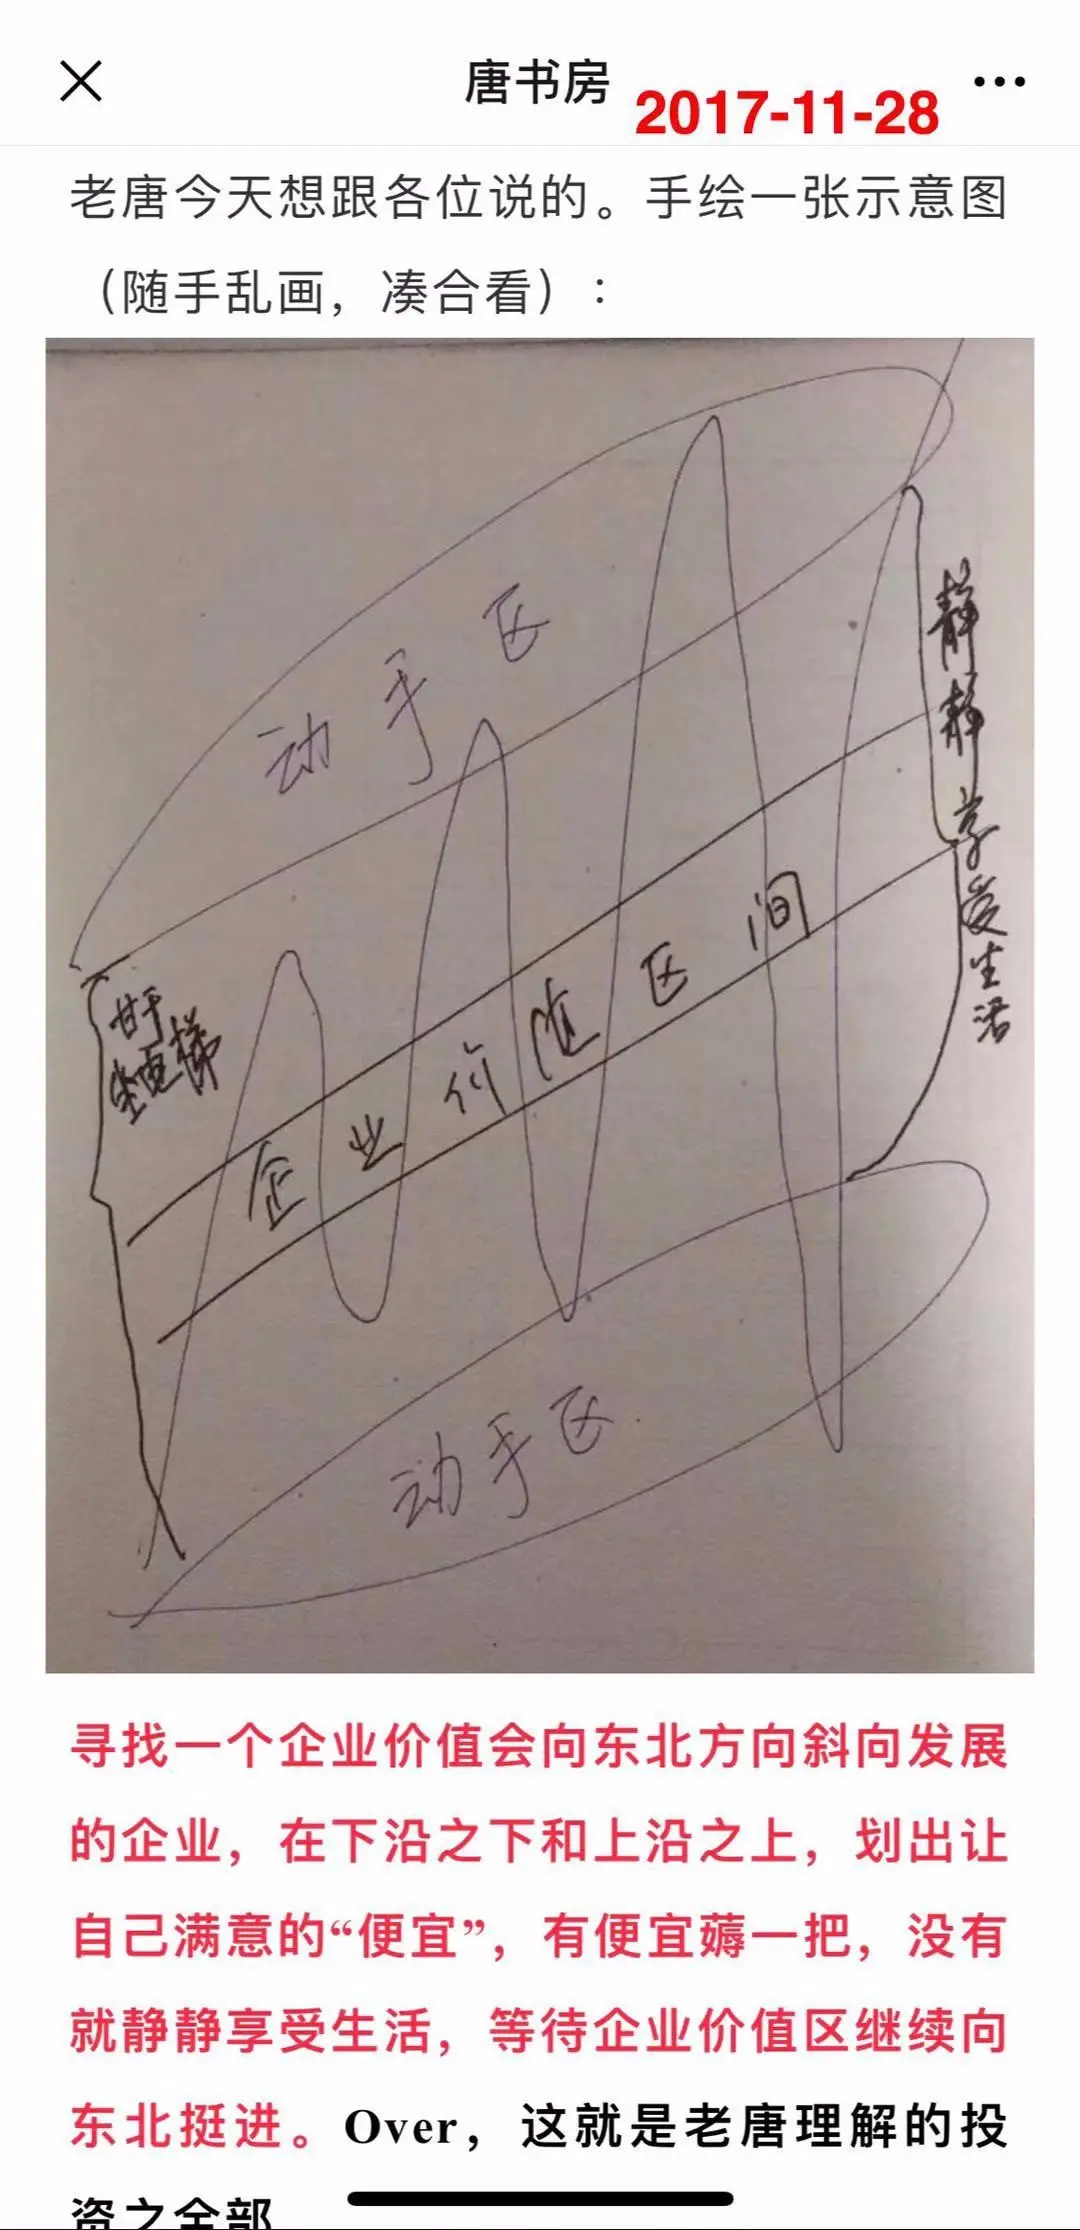 唐书房
2017-11-28
老唐今天想跟各位说的。手绘一张示意图
（随手乱画，凑合看）：
动手区
静静享受生活
甘于
坐电梯
企业价值区间
动手区
寻找一个企业价值会向东北方向斜向发展
的企业，在下沿之下和上沿之上，划出让
自己满意的“便宜”，有便宜薅一把，没有
就静静享受生活，等待企业价值区继续向
东北挺进。Over，这就是老唐理解的投
资之全部